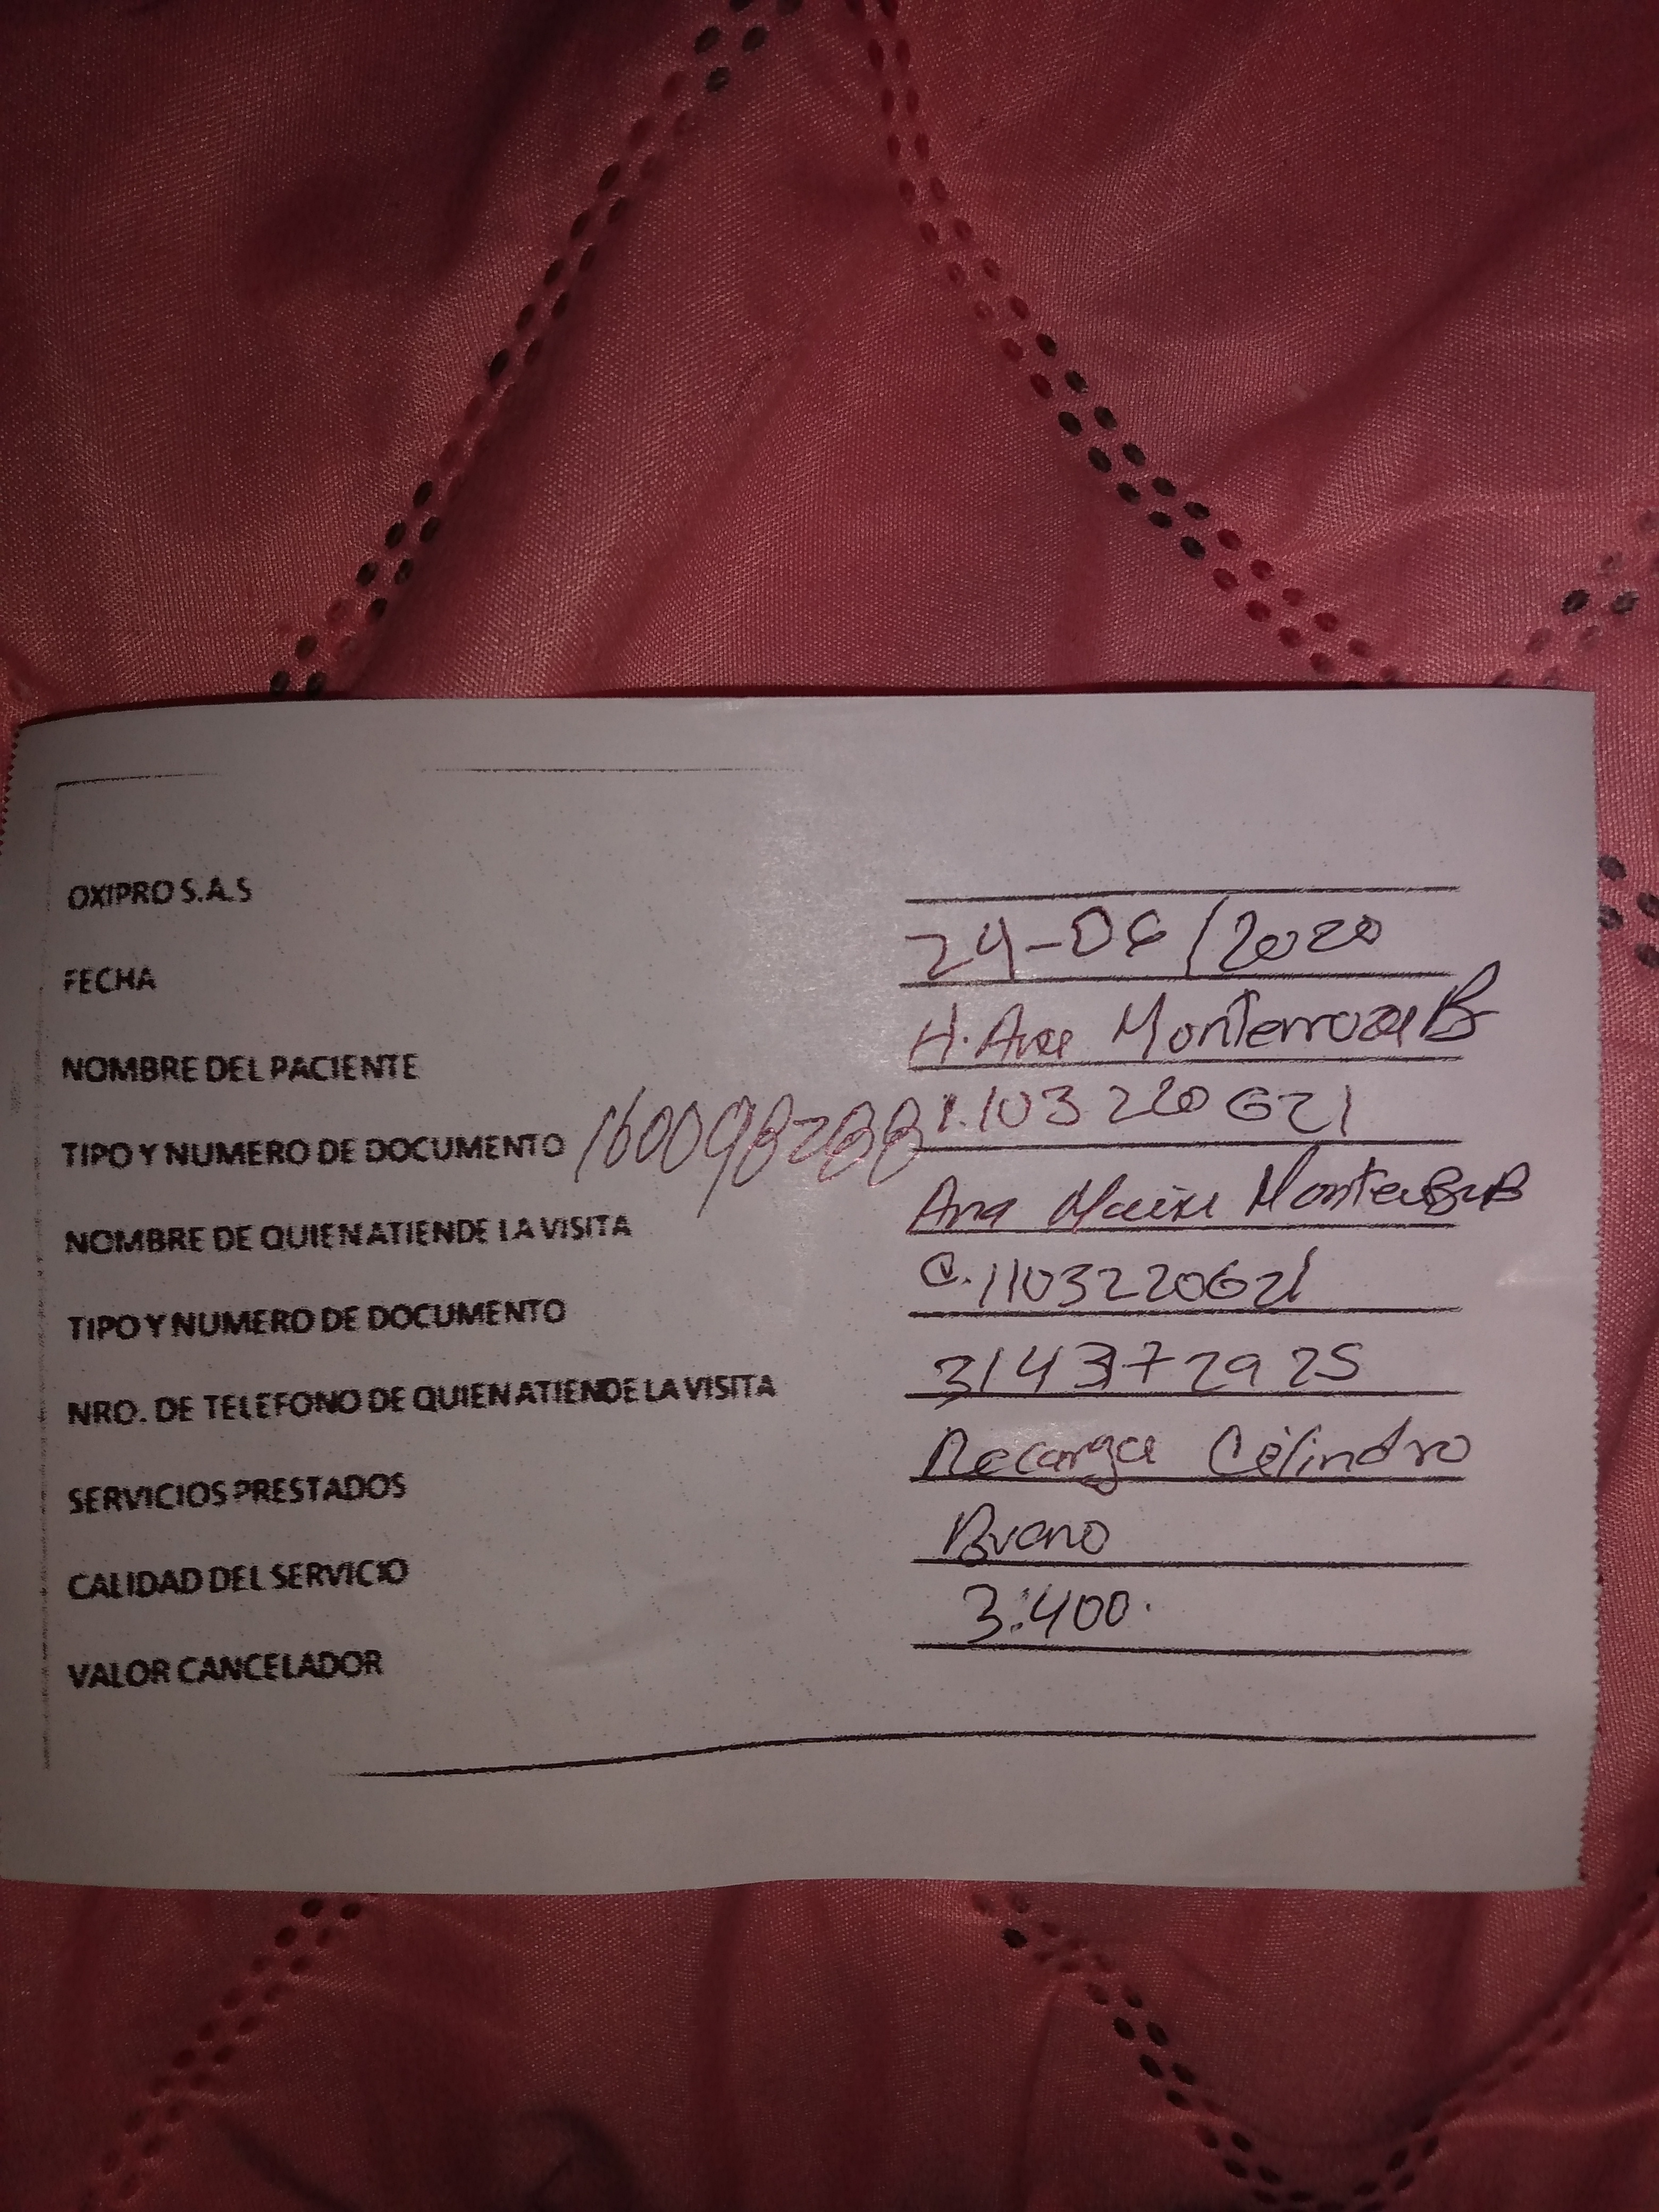 OXIPRO S.A.S
FECHA 24-06/2020
NOMBRE DEL PACIENTE H. Ana Monterroza B
TIPO Y NUMERO DE DOCUMENTO 1.103220621
NOMBRE DE QUIEN ATIENDE LA VISITA Ana
TIPO Y NUMERO DE DOCUMENTO C.1103220621
NRO. DE TELEFONO DE QUIEN ATIENDE LA VISITA 3143772925
SERVICIOS PRESTADOS Recarga Cilindro
CALIDAD DEL SERVICIO Bueno
VALOR CANCELADOR 3.400.